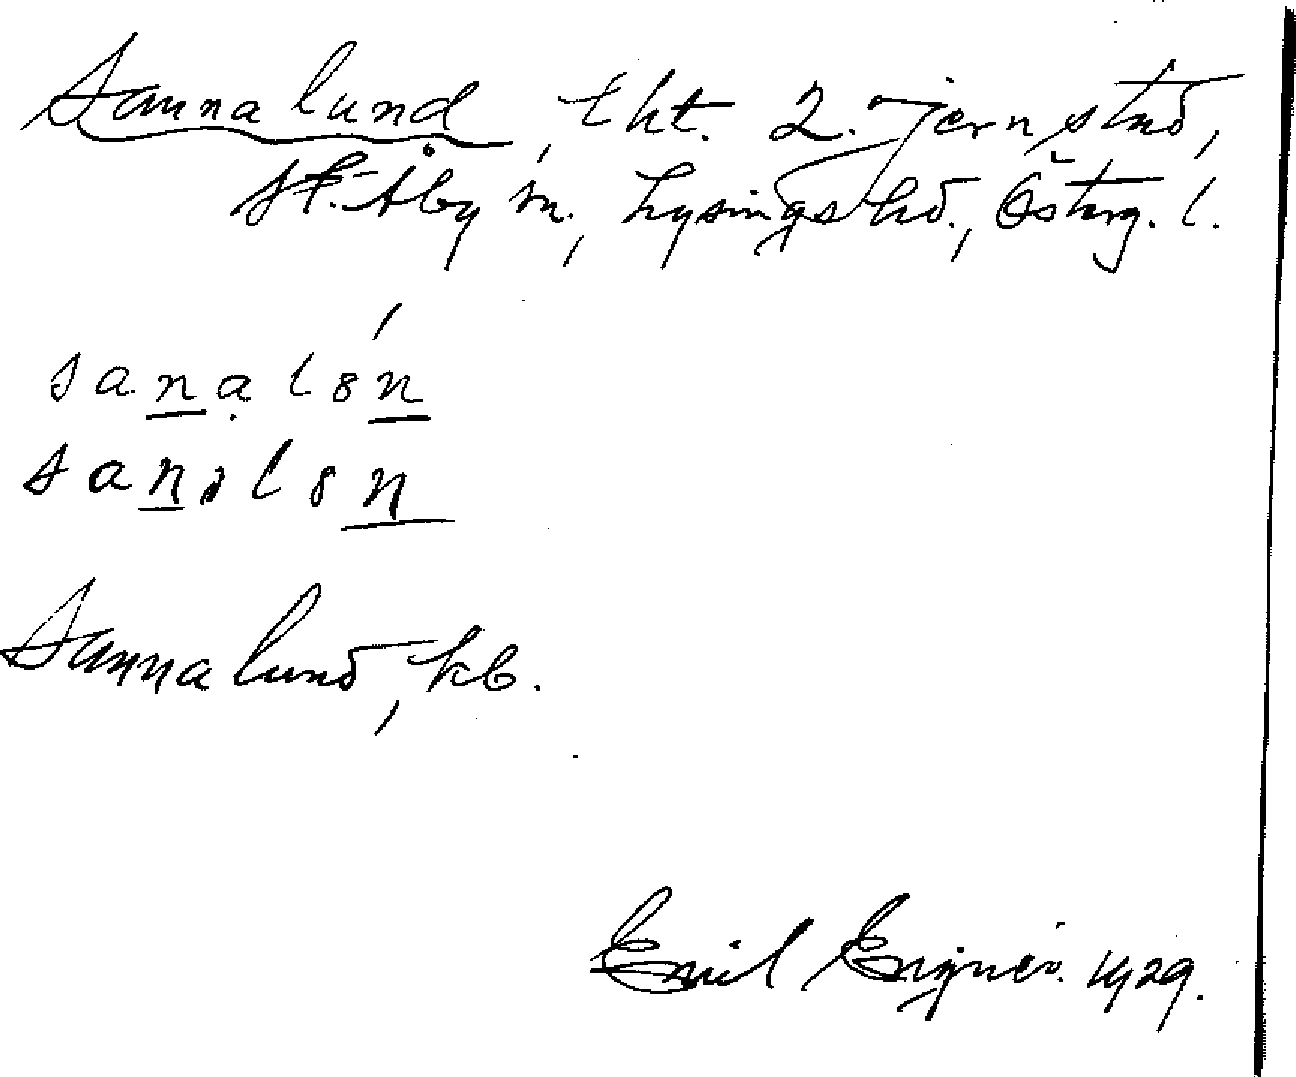 Sannalund, tht. 2. Jernstad,
St. Åby sn., Lysings hd., Österg. l.
sanalón
sanəlon
Sannalund, kb.
Emil 1929.